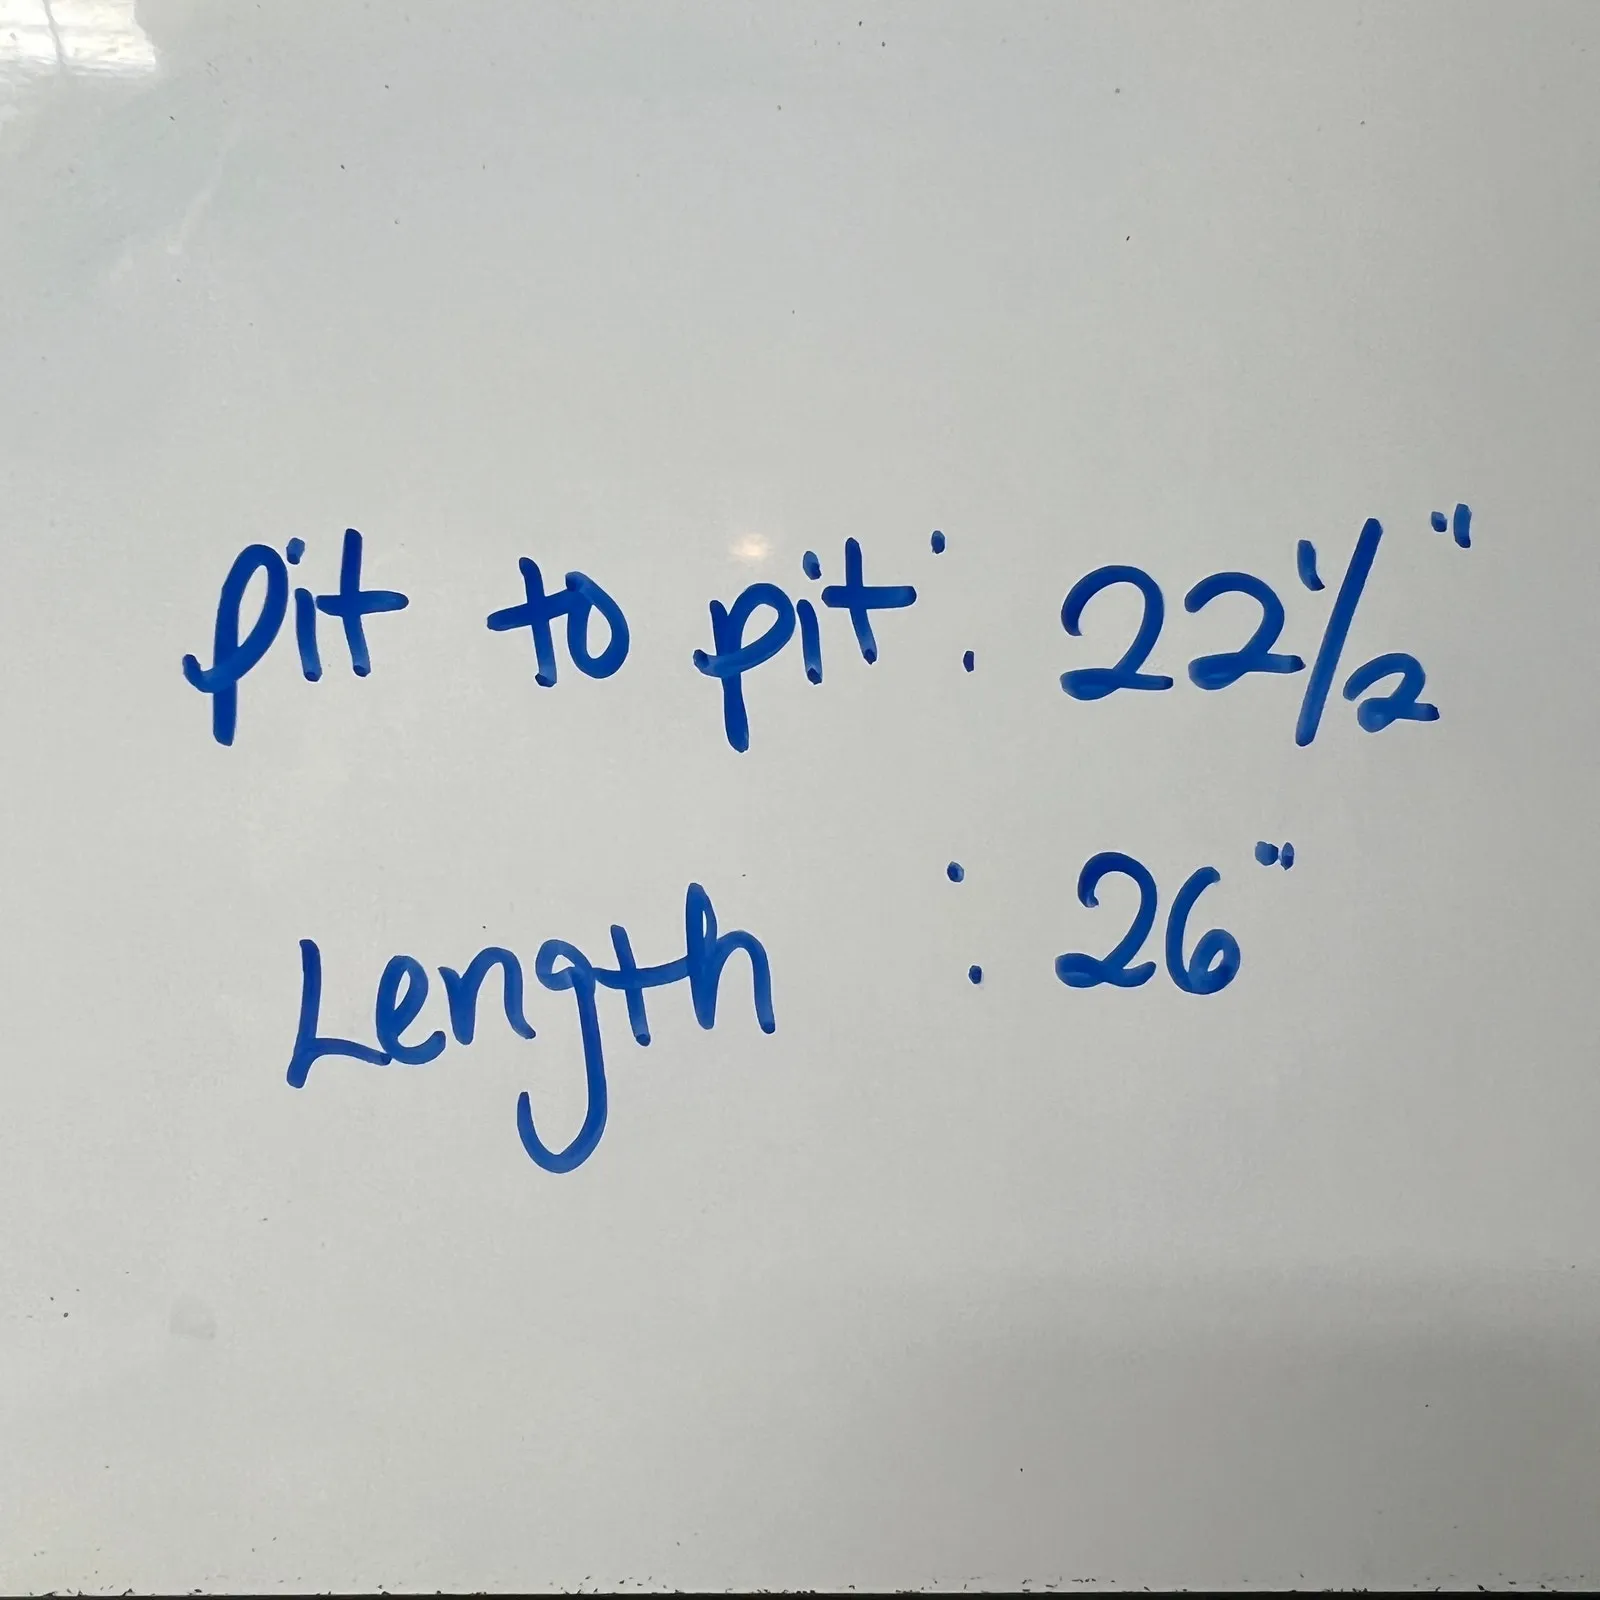 pit to pit : 22 1/2"
Length : 26"